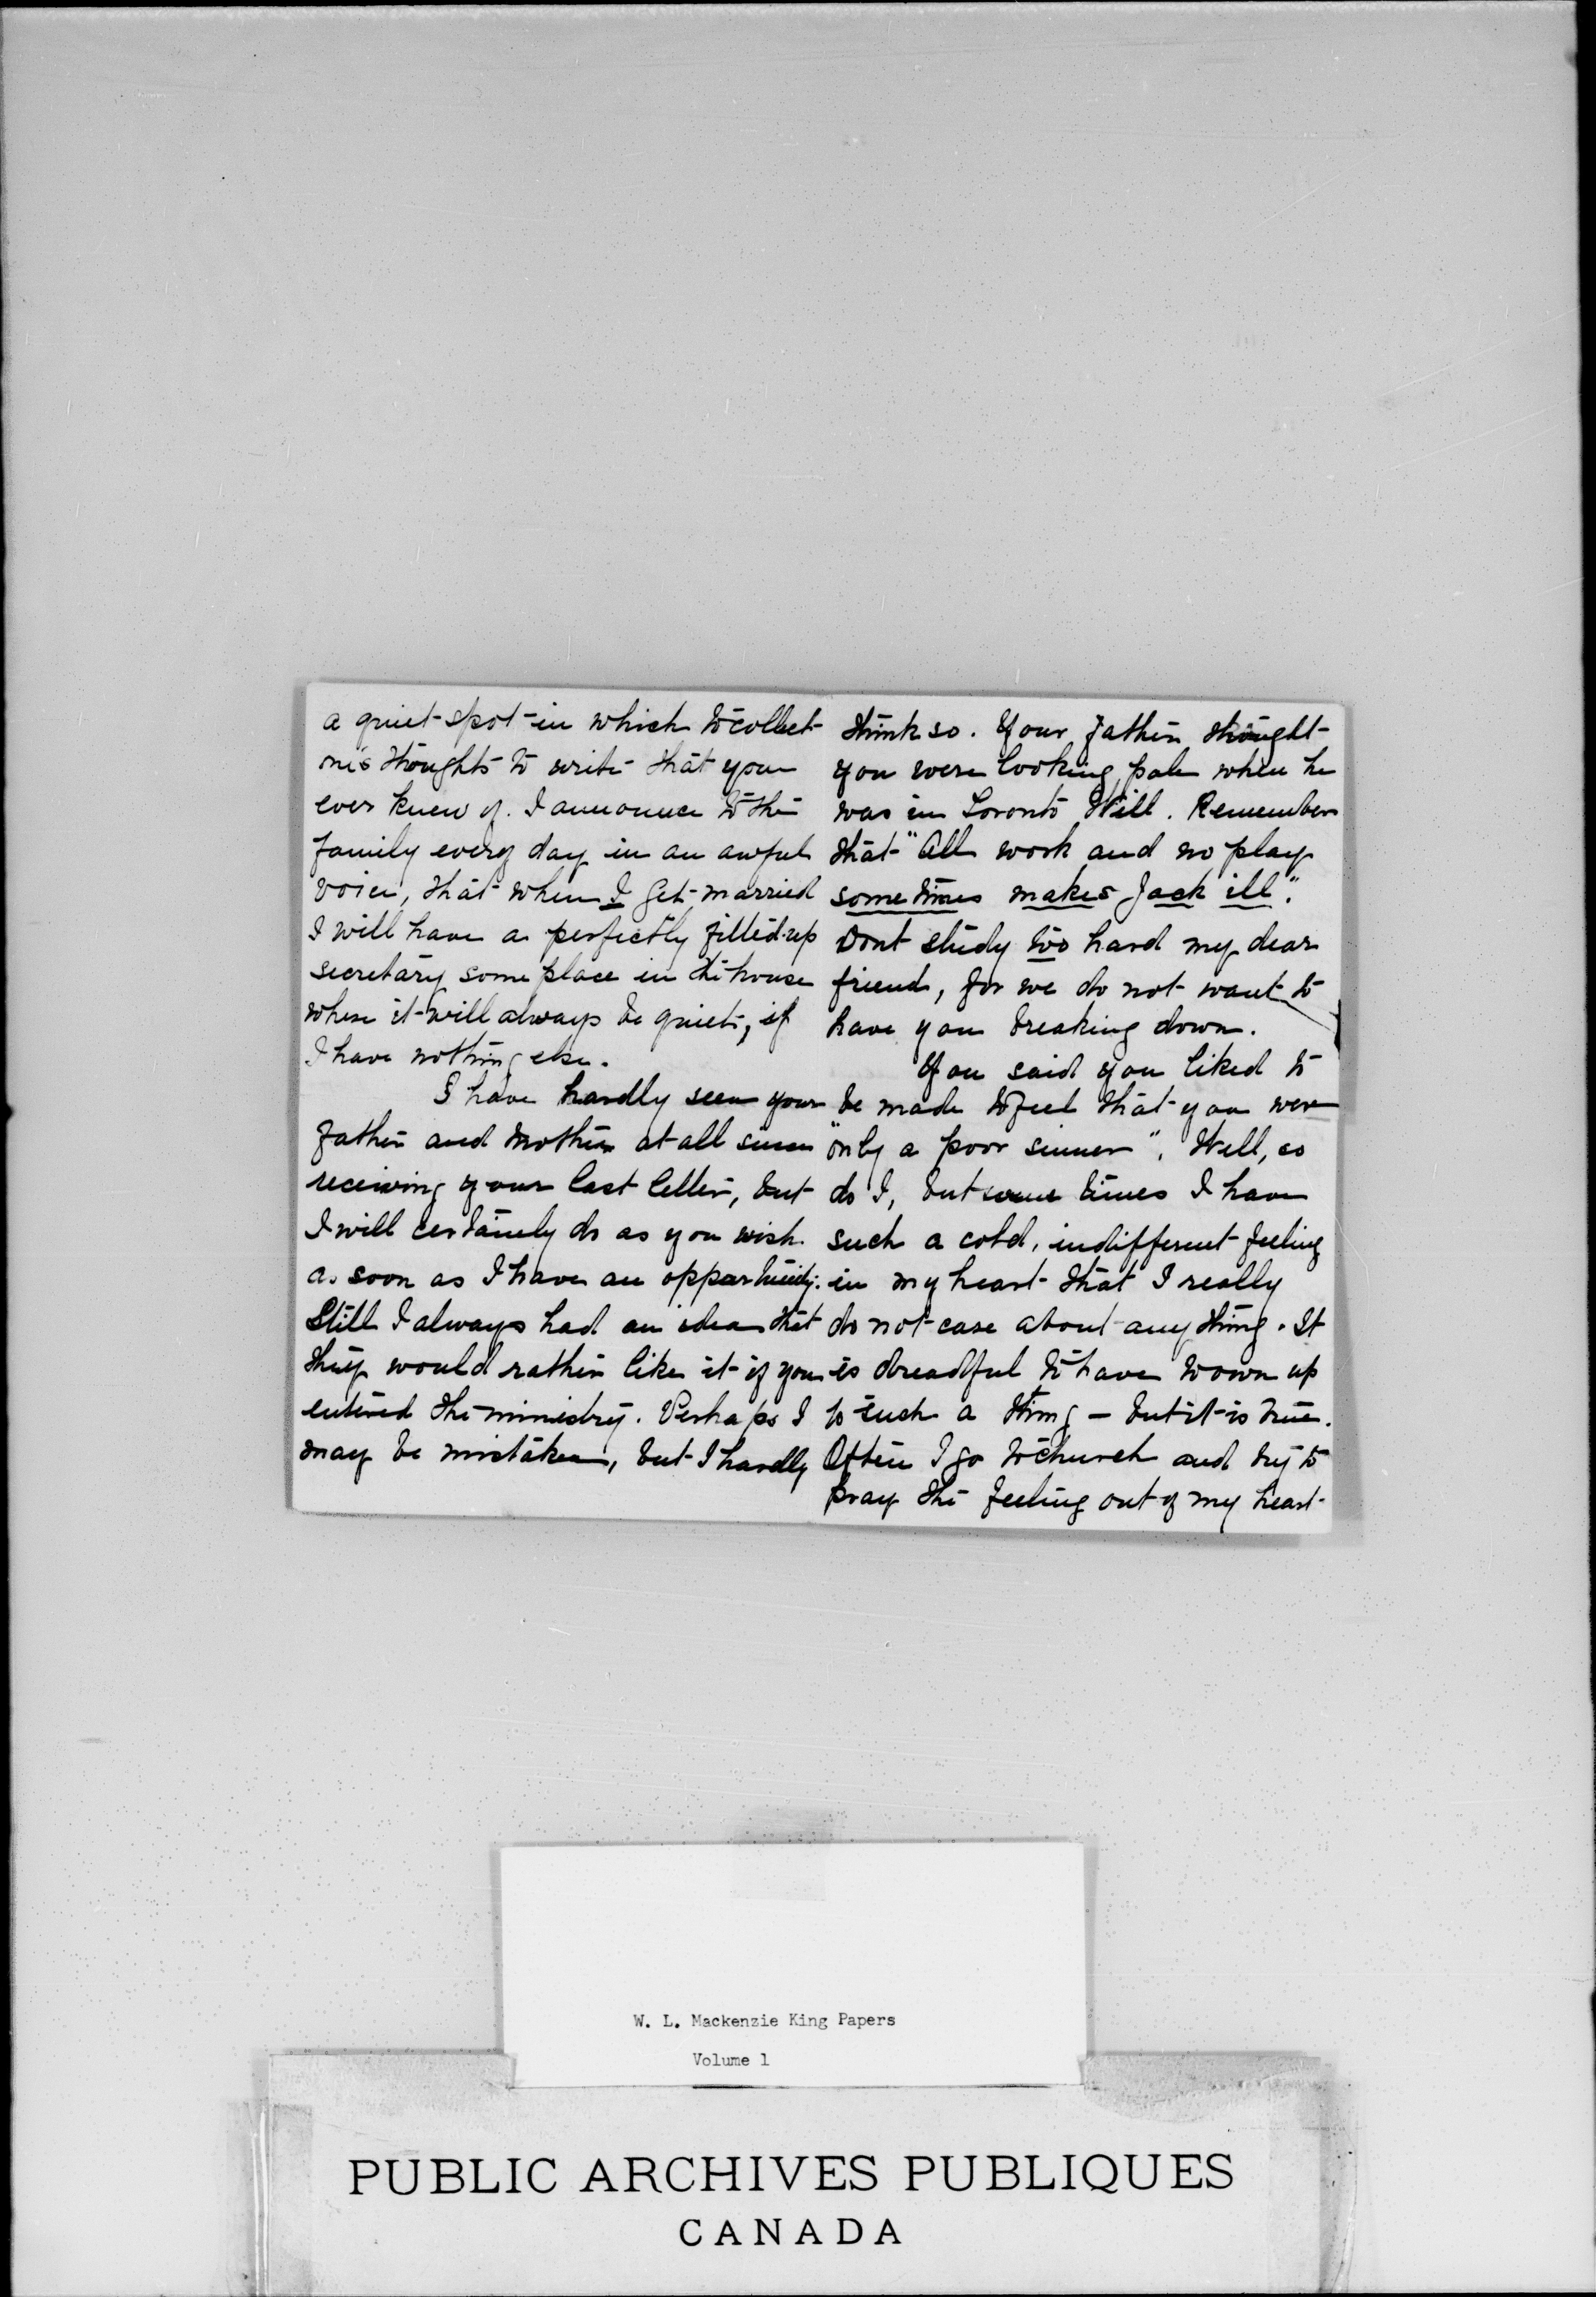 a quiet spot in which to collect
one's thoughts to write that you
ever knew of. I announce to the
family every day in an awful
voice, that when I get married
I will have a perfectly filled-up
secretary some place in the house
where it will always be quiet, if
I have nothing else.
I have hardly seen your
father and mother at all since
receiving your last letter, but
I will certainly do as you wish
as soon as I have an opportunity.
Still I always had an idea that
they would rather like it if you
entered the ministry. Perhaps I
may be mistaken, but I hardly
think so. Your father thought
you were looking pale when he
was in Toronto Will. Remember
that "All work and no play
sometimes makes Jack ill".
Dont study too hard my dear
friend, for we do not want to
have you breaking down.
You said you liked to
be made to feel that you were
"only a poor sinner". Well, so
do I, but some times I have
such a cold, indifferent feeling
in my heart that I really
do not care about any thing. It
is dreadful to have to own up
to such a thing – but it is true.
Often I go to church and try to
pray the feeling out of my heart
W. L. Mackenzie King Papers
Volume 1
PUBLIC ARCHIVES PUBLIQUES
CANADA